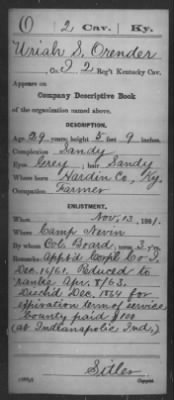 O | 2 Cav. | Ky.
Uriah S. Orender
Co. I, 2 Reg't Kentucky Cav.
Appears on
Company Descriptive Book
of the organization named above.
DESCRIPTION.
Age 29 years; height 5 feet 9 inches.
Complexion Sandy
Eyes Grey; hair Sandy
Where born Hardin Co, Ky.
Occupation Farmer
ENLISTMENT.
When Nov. 13, 1861.
Where Camp Nevin
By whom Col. Board; term 3 y'rs.
Remarks: Appt'd Corpl Co I
Dec. 15/61. Reduced to
ranks Apr. 8/63.
Disch'd Dec. 1864 for
expiration term of service
bounty paid $100
(at Indianapolis Ind.)
Sitler
Copyist.